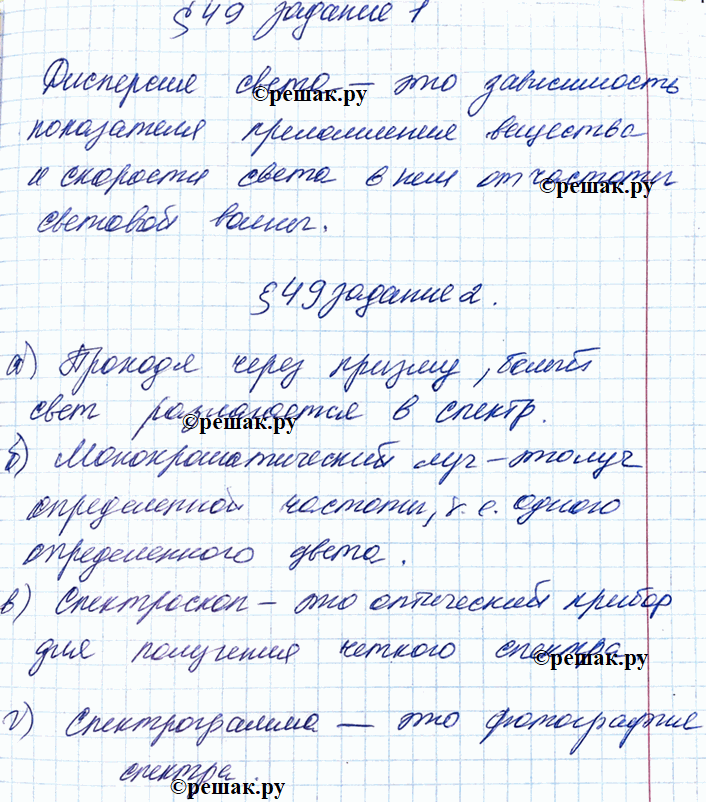 § 49 задание 1
Дисперсия света – это зависимость
©решак.ру
показателя преломления вещества
и скорости света в нем от частоты
©решак.ру
световой волны.
§ 49 задание 2.
а) Проходя через призму, белый
свет разлагается в спектр.
©решак.ру
б) Монохроматический луч – это луч
определенной частоты, т.е. одного
определенного цвета.
в) Спектроскоп – это оптический прибор
для получения четкого спектра
©решак.ру
г) Спектрограмма — это фотография
спектра.
©решак.ру